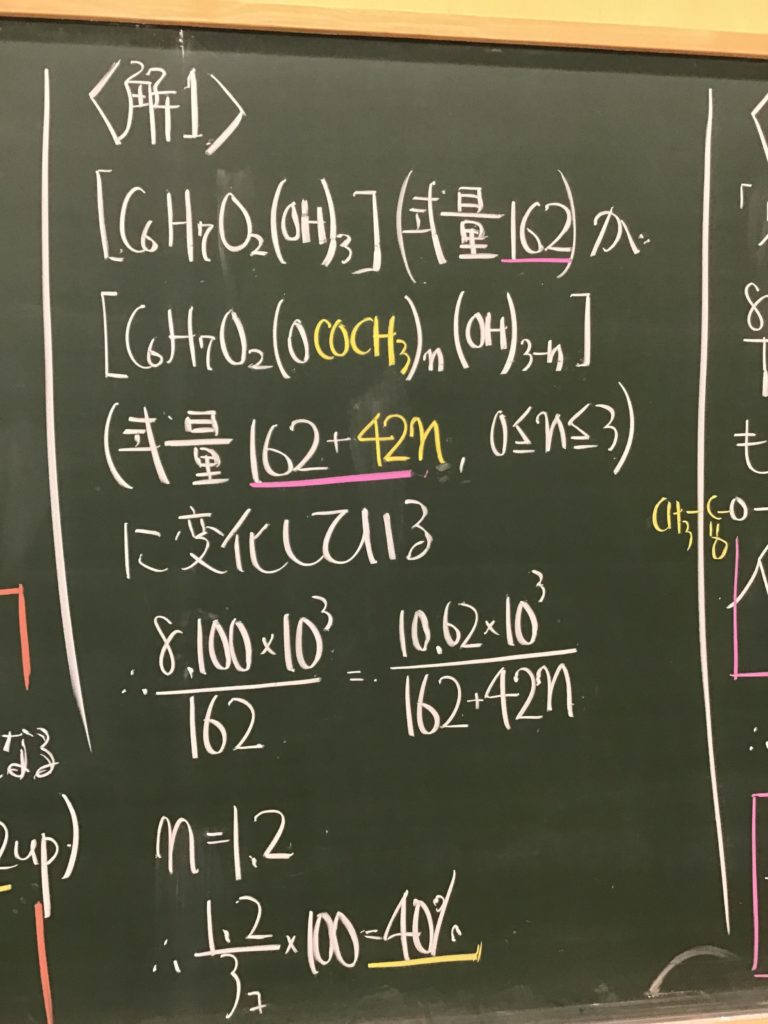 〈解1〉
[C₆H₇O₂(OH)₃](式量162)が
[C₆H₇O₂(OCOCH₃)ₙ(OH)₃₋ₙ]
(式量162+42n, 0≦n≦3)
に変化している
∴ 8.100×10³/162 = 10.62×10³/(162+42n)
n=1.2
∴ 1.2/3 ×100=40%
なる
2up)
CH₃-C-O-
O
も
8